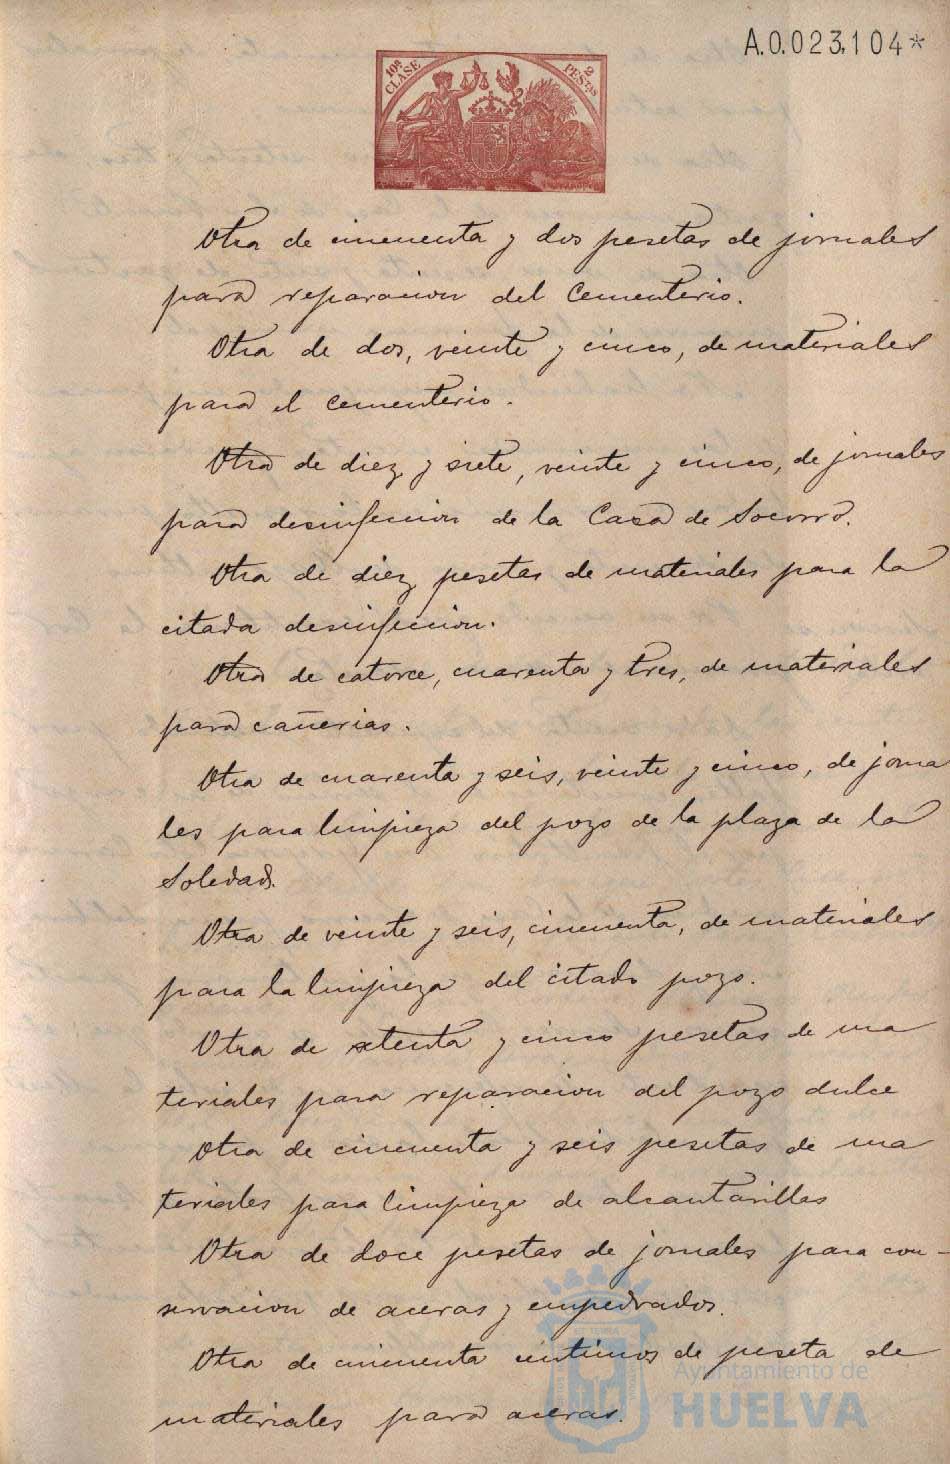 A.0.023,104*
10ª CLASE
2 PESTAS
Otra de cincuenta y dos pesetas de jornales
para reparacion del Cementerio.
Otra de dos, veinte y cinco, de materiales
para el cementerio.
Otra de diez y siete, veinte y cinco, de jornales
para desinfeccion de la Casa de Socorro.
Otra de diez pesetas de materiales para la
citada desinfeccion.
Otra de catorce, cuarenta y tres, de materiales
para cañerias.
Otra de cuarenta y seis, veinte y cinco, de jorna
les para limpieza del pozo de la plaza de la
Soledad.
Otra de veinte y seis, cincuenta, de materiales
para la limpieza del citado pozo.
Otra de setenta y cinco pesetas de ma
teriales para reparacion del pozo dulce
Otra de cincuenta y seis pesetas de ma
teriales para limpieza de alcantarillas
Otra de doce pesetas de jornales para con-
servacion de aceras y empedrados.
Otra de cincuenta centimos de peseta de
materiales para aceras.
Ayuntamiento de
HUELVA